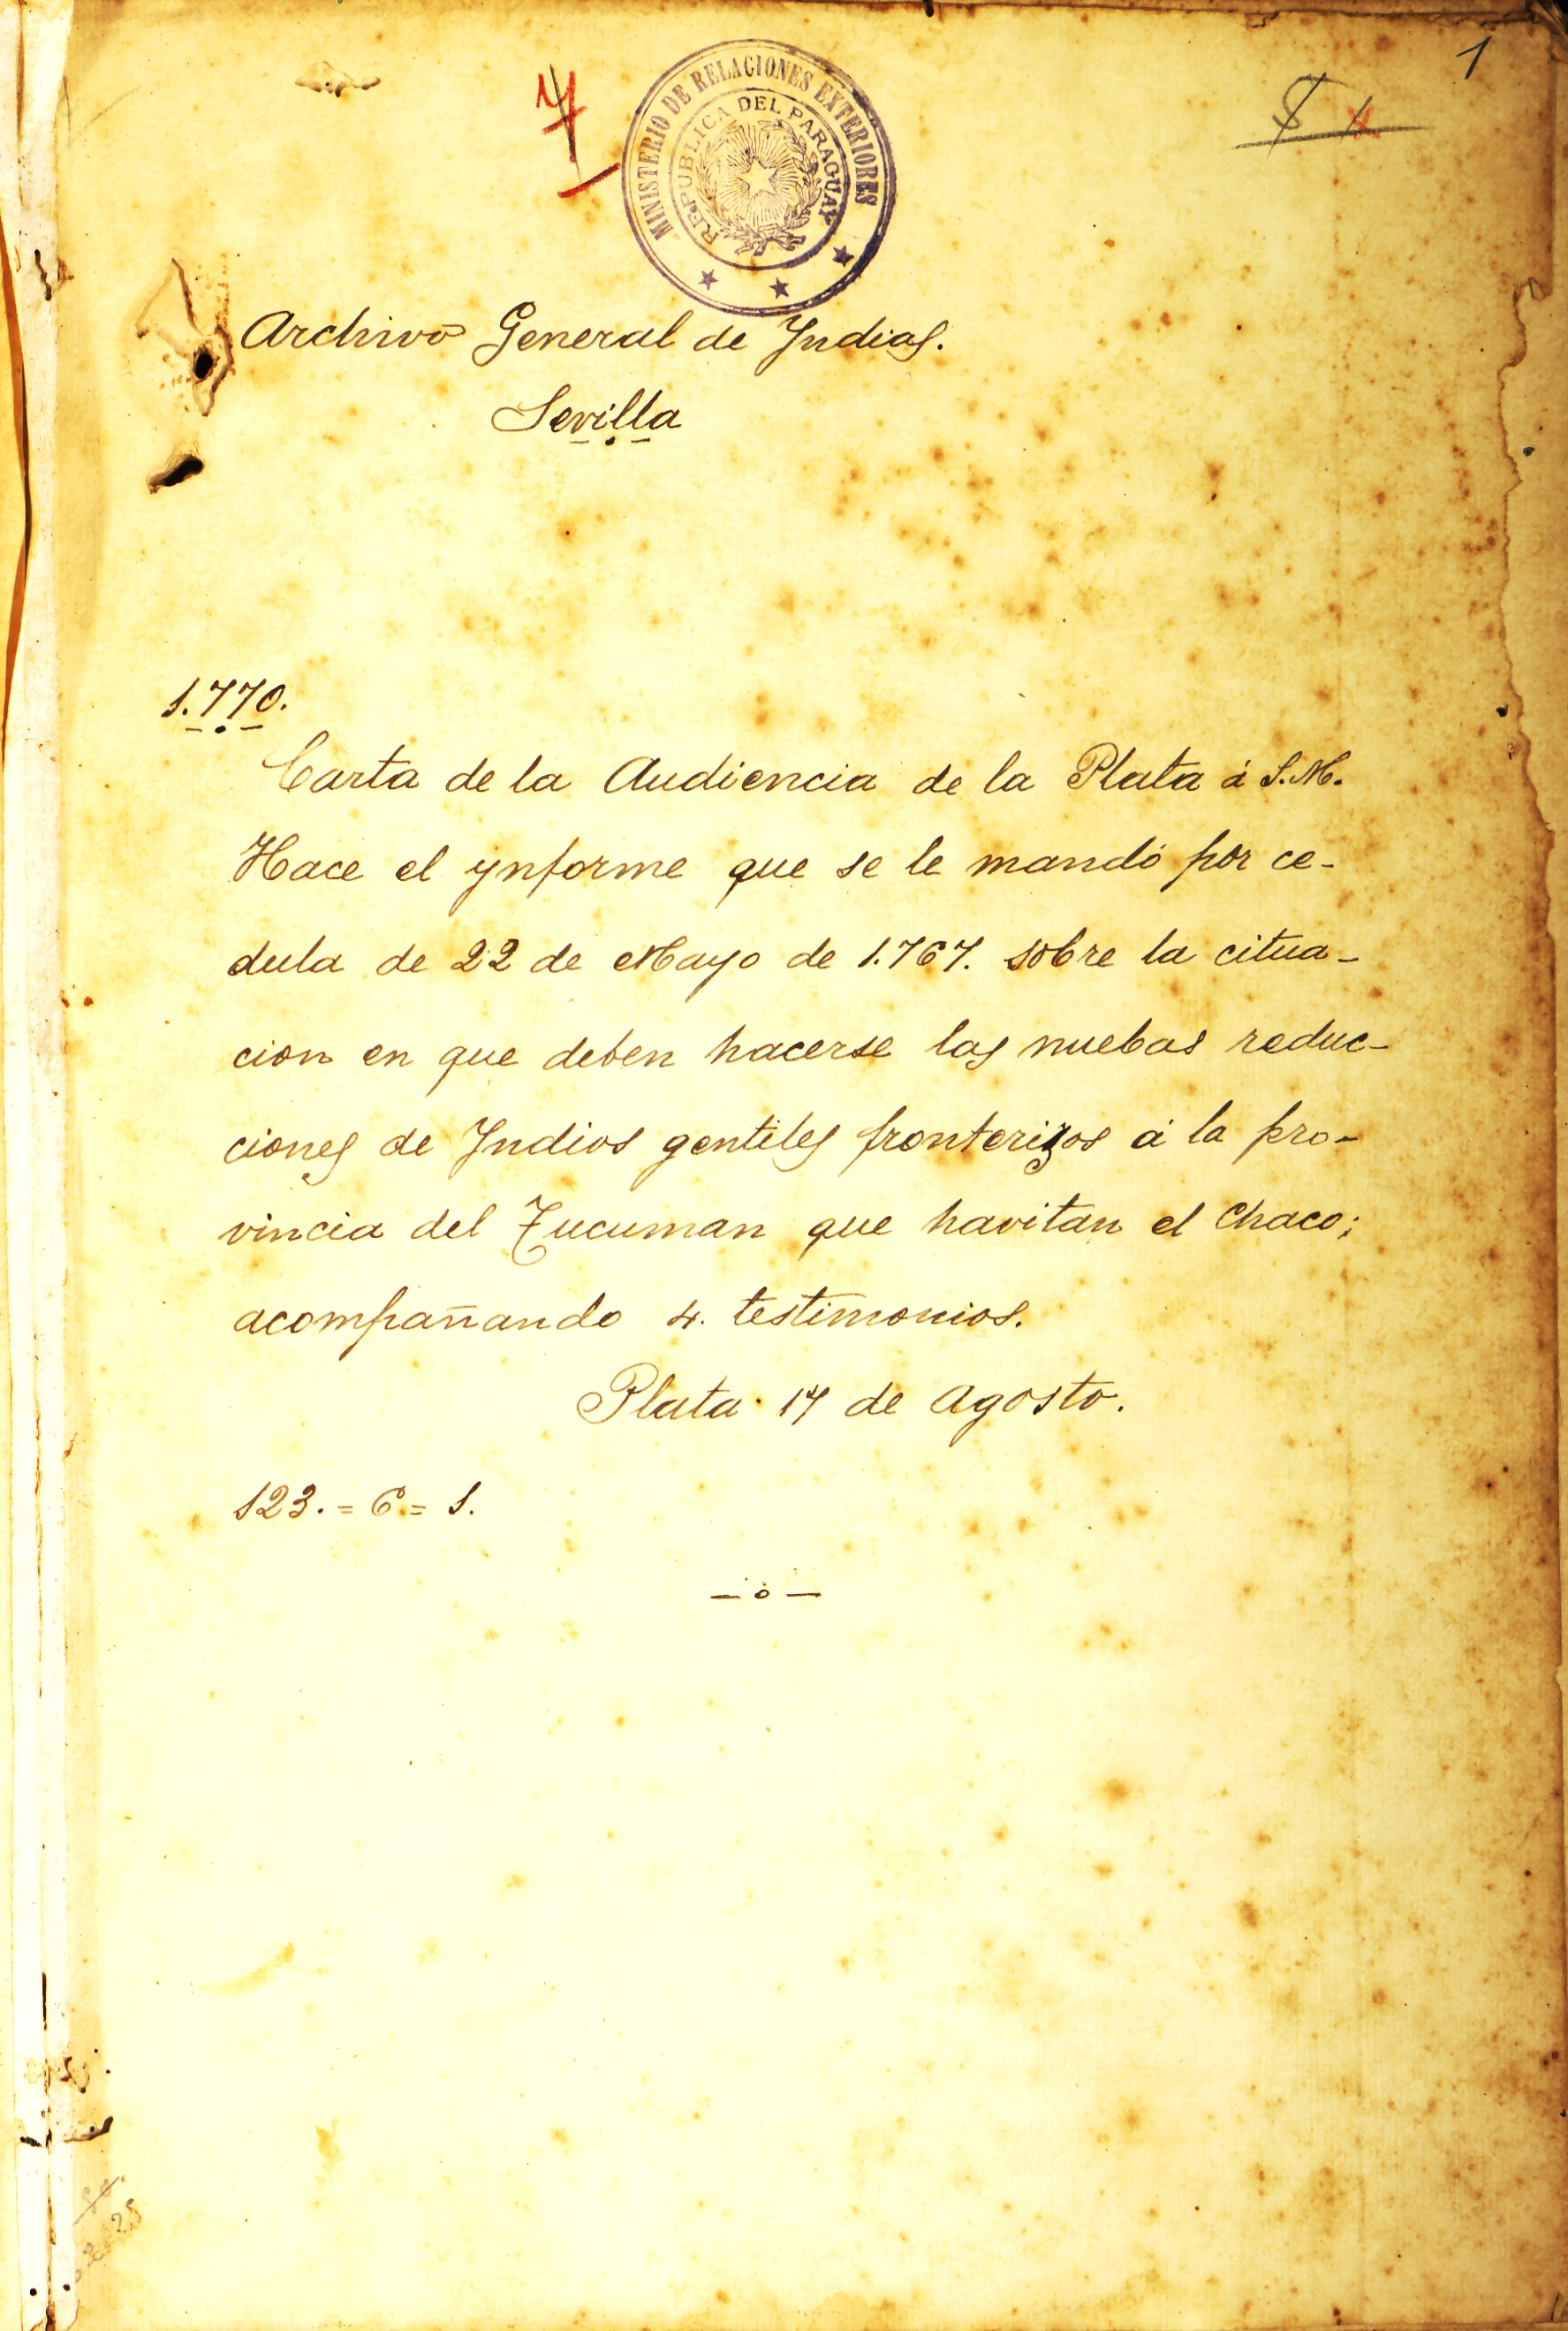 1
7
MINISTERIO DE RELACIONES EXTERIORES
REPUBLICA DEL PARAGUAY
Archivo General de Yndias.
Sevilla
1.770.
Carta de la Audiencia de la Plata á S.M.
Hace el ynforme que se le mandó por ce-
dula de 22 de Mayo de 1.767. sobre la citua-
cion en que deben hacerse las nuebas reduc-
ciones de Yndios gentiles fronterizos á la pro-
vincia del Tucuman que havitan el Chaco;
acompañando 4. testimonios.
Plata 17 de Agosto.
123. = 6 = 1.